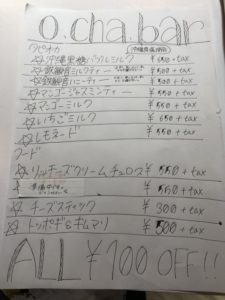 o.cha.bar
タピオカ
☆沖縄黒糖パールミルク ¥550+tax
☆鉄観音ミルクティー ¥500+tax
☆鉄観音ハニーティー ¥500+tax
☆マンゴージャスミンティー ¥550+tax
☆マンゴーミルク ¥550+tax
☆いちごミルク ¥650+tax
☆レモネード ¥550+tax
フード
☆リッチーズクリームチュロス ¥550+tax
☆ ¥550+tax
☆チーズスティック ¥300+tax
☆トッポギ&キムマリ ¥500+tax
ALL ¥100 OFF!!